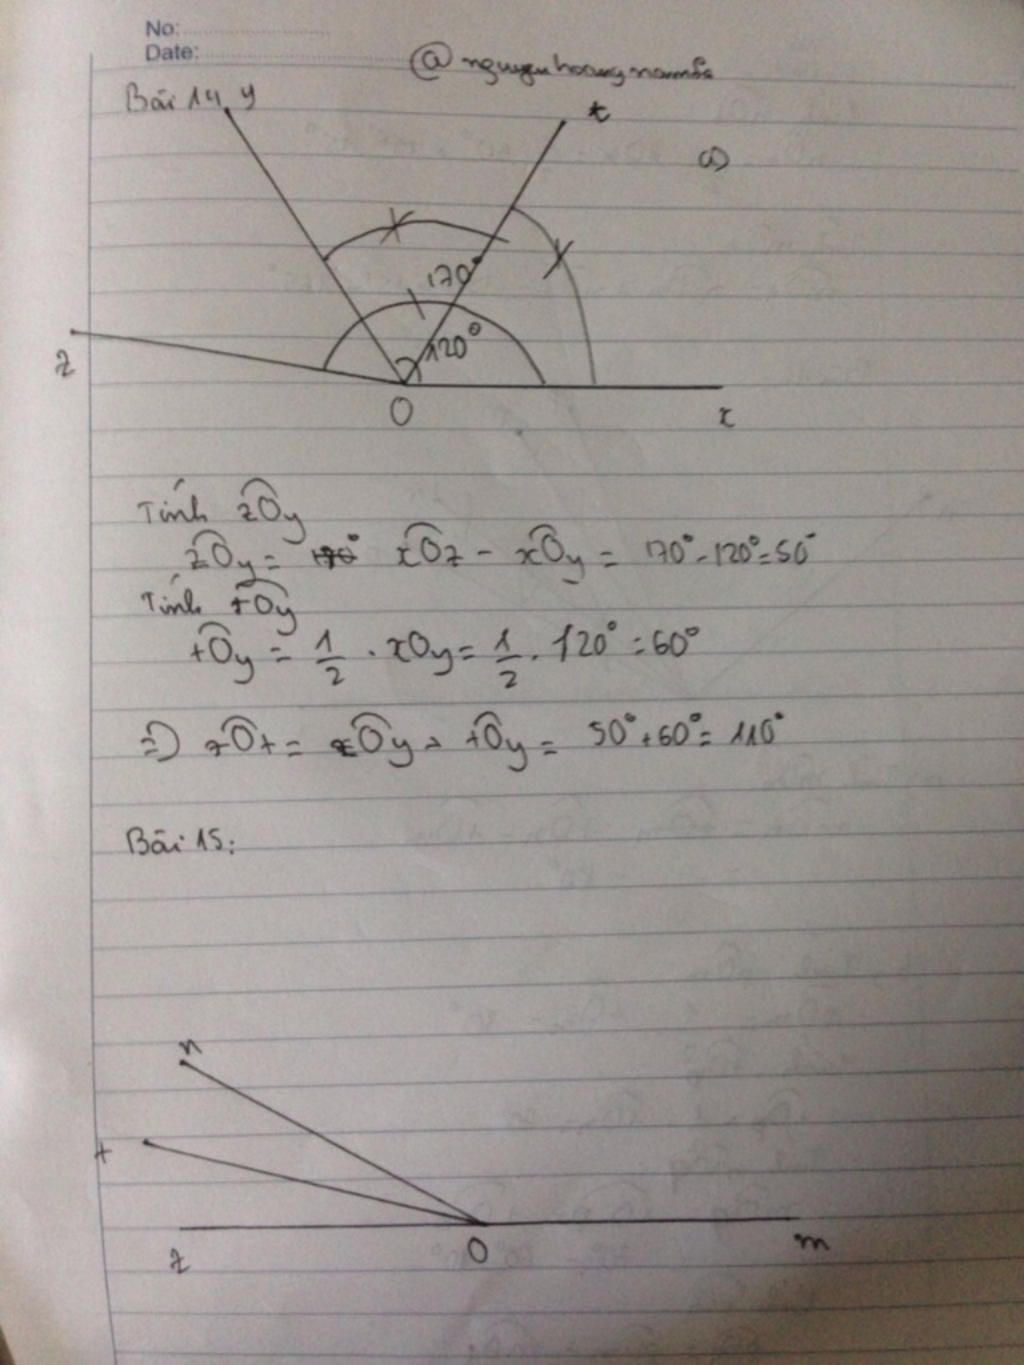 No:
Date:
@nguyenhoangnam
Bài 14 y
t
a)
170°
120°
z
O
x
Tính zOy
zOy = xOz - xOy = 170° - 120° = 50°
Tính tOy
tOy = 1/2 . xOy = 1/2 . 120° = 60°
=> zOt = zOy + tOy = 50° + 60° = 110°
Bài 15:
n
t
z
O
m